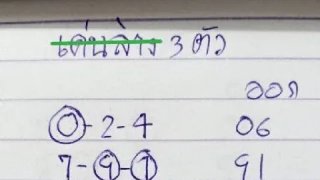 เด่นล่าง 3 ตัว
ออก
0-2-4 06
7-9-1 91